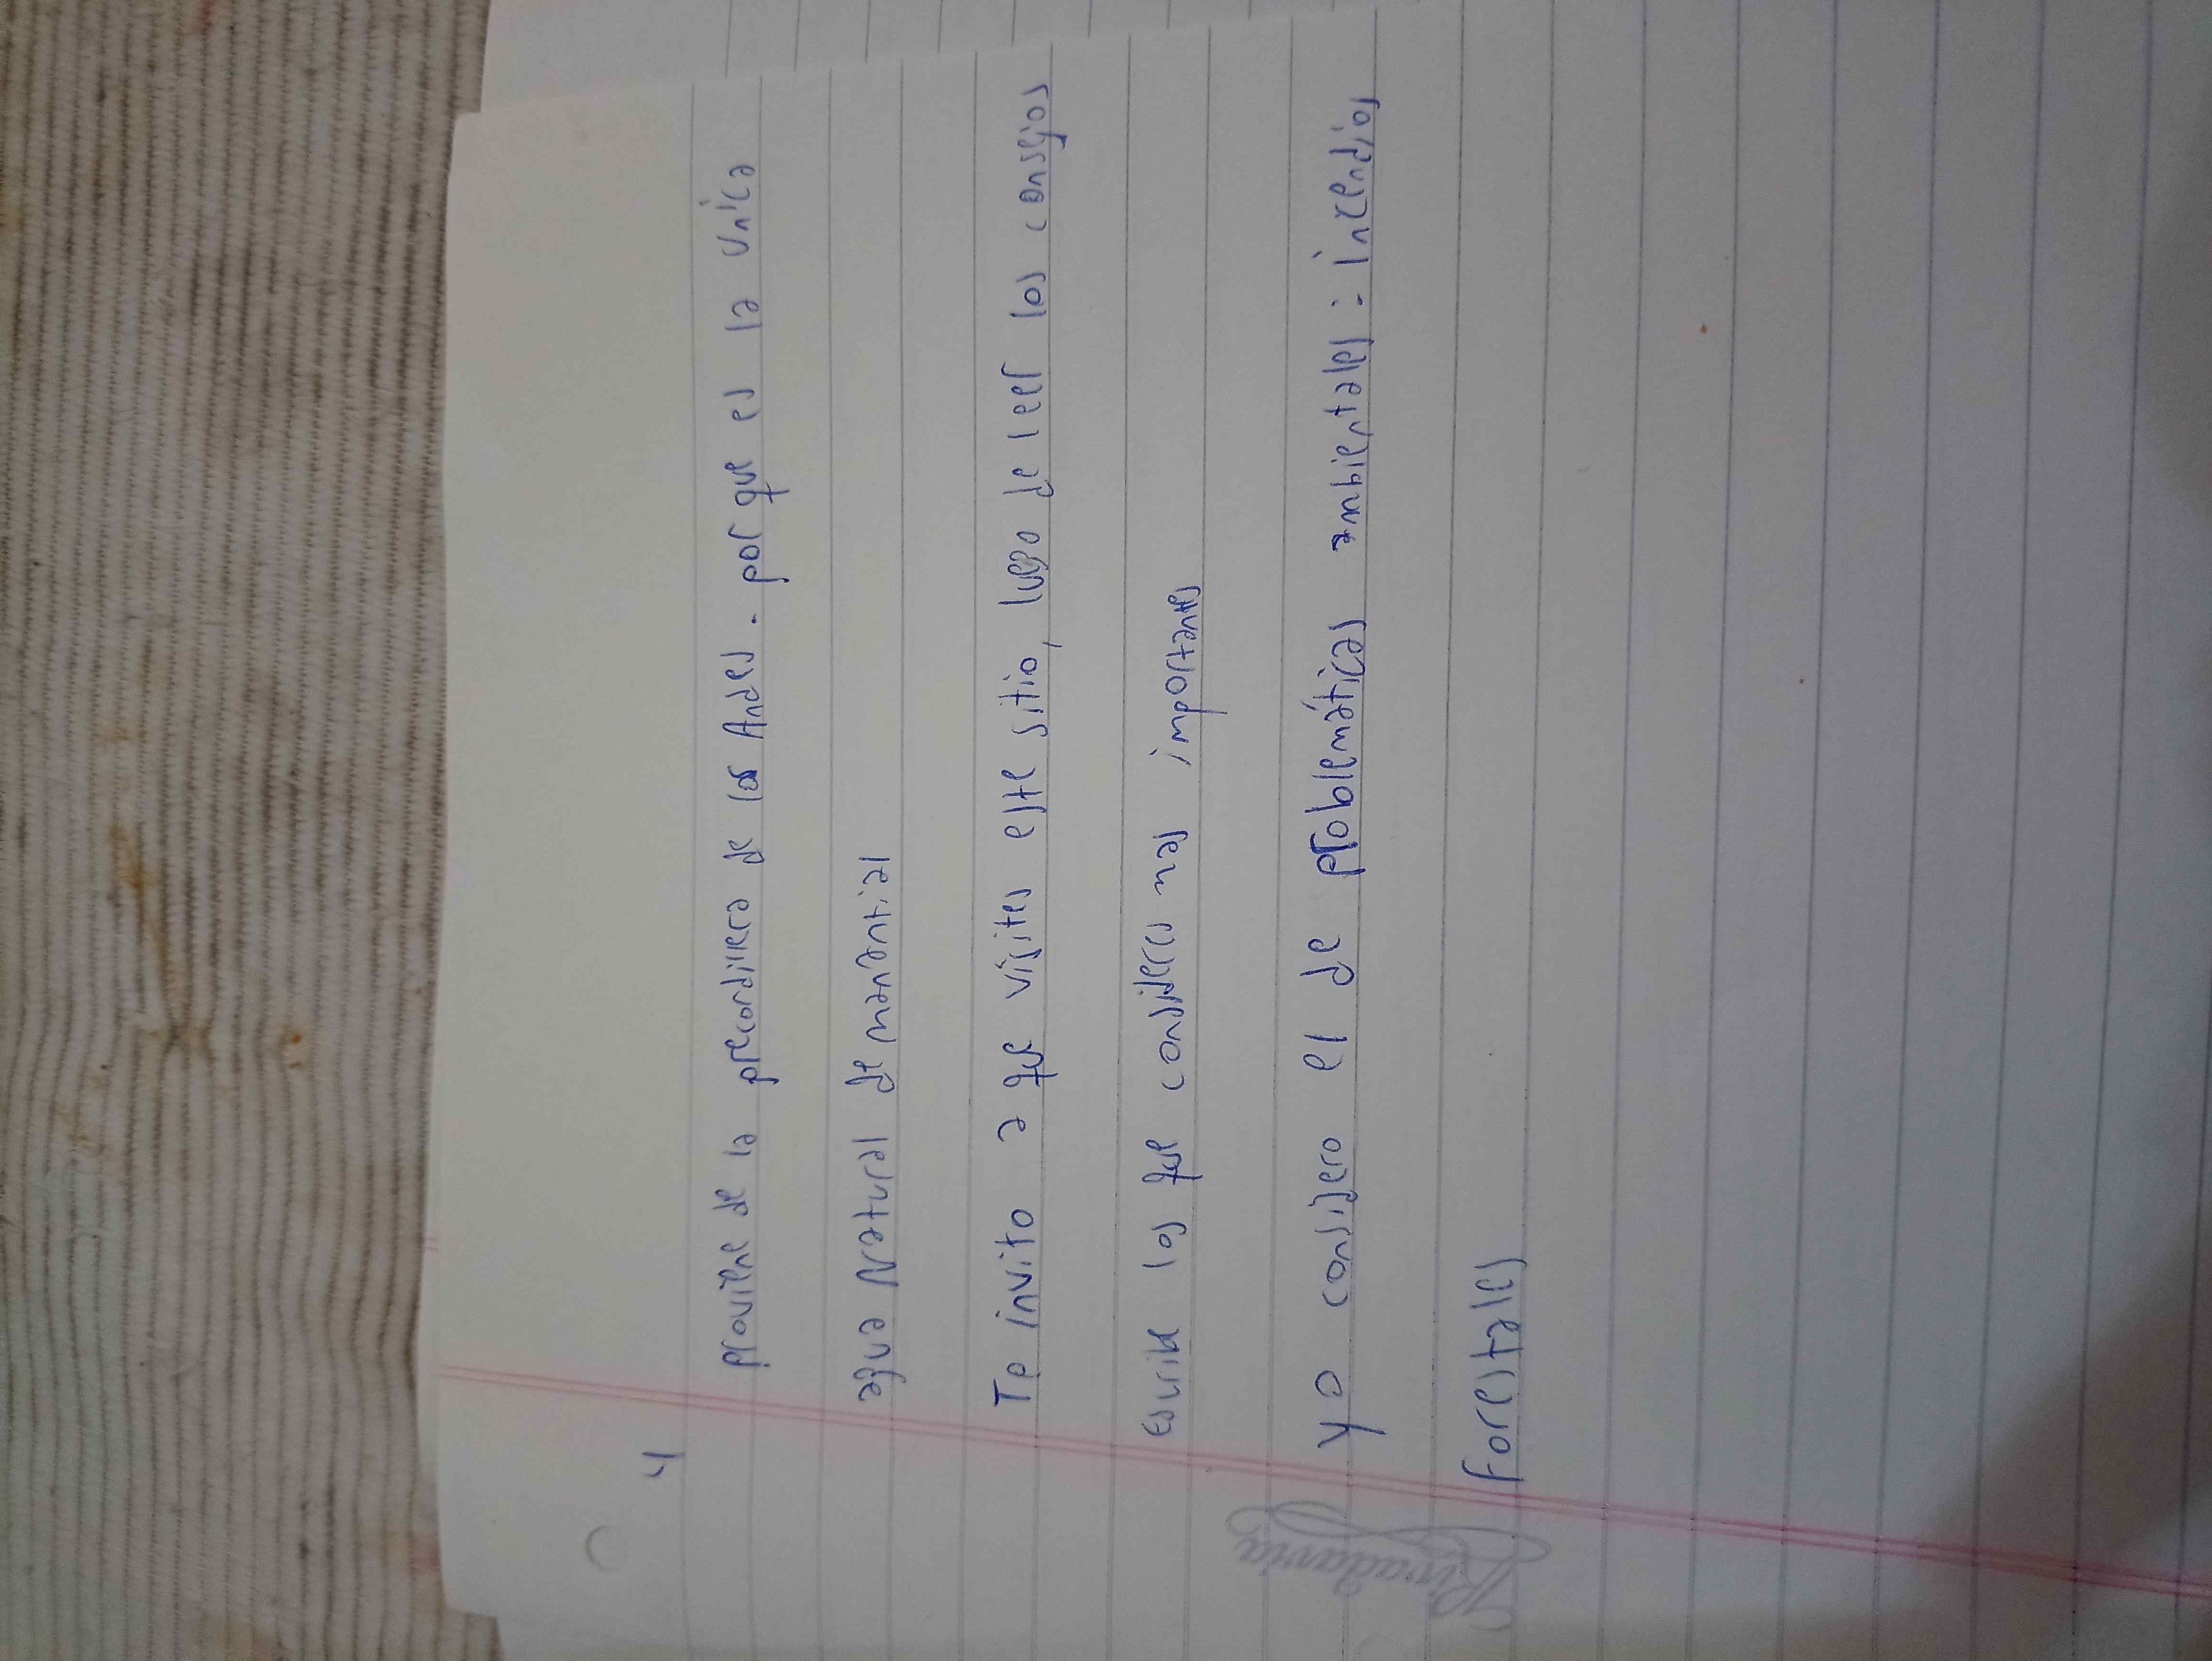 4
proviene de la precordillera de los Andes. por que es la unica
agua Natural de manantial
Te invito a que visites este sitio, luego de leer los consejos
escribe los que consideres mas importantes
Yo considero a la de problemáticas ambientales: incendios
forestales
Rivadavia